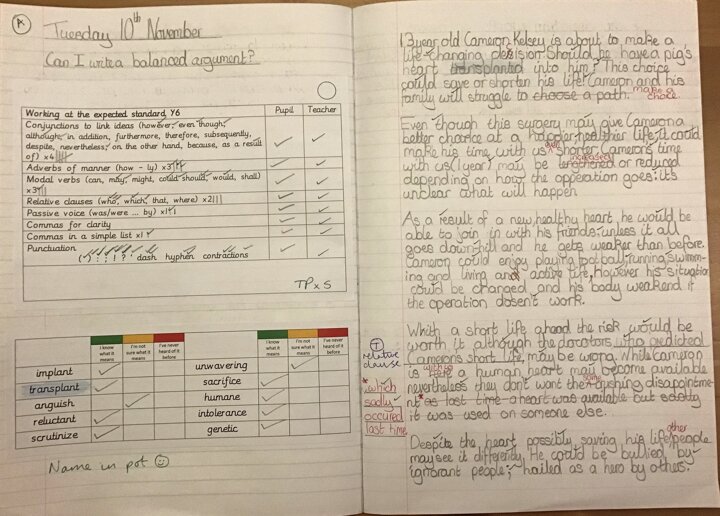 A
Tuesday 10th November
Can I write a balanced argument?
Working at the expected standard Y6 Pupil Teacher
Conjunctions to link ideas (however, even though,
although, in addition, furthermore, therefore, subsequently,
despite, nevertheless, on the other hand, because, as a result
of) x4
Adverbs of manner (how - ly) x3
Modal verbs (can, may, might, could should, would, shall)
x3
Relative clauses (who, which, that, where) x2
Passive voice (was/were ... by) x1
Commas for clarity
Commas in a simple list x1
Punctuation
(,) : ; ! ? dash hyphen contractions
TP x 5
I know what it means I'm not sure what it means I've never heard of it before I know what it means I'm not sure what it means I've never heard of it before
implant unwavering
transplant sacrifice
anguish humane
reluctant intolerance
scrutinize genetic
Name in pot
13 year old Cameron Kelsey is about to make a
life-changing decision. Should he have a pig's
heart transplanted into him? This choice
could save or shorten his life! Cameron and his
family will struggle to choose a path. make a
choice.
Even though this surgery may give Cameron a
better chance at a happier, healthier life, it could
make his time with us even shorter. Cameron's time
with us (1 year) may be lengthened increased or reduced
depending on how the opperation goes: it's
unclear what will happen
As a result of a new healthy heart, he would be
able to join in with his friends: unless it all
goes down-hill and he gets weaker than before.
Cameron could enjoy playing football, running, swimm-
ing and living and active life, however his situation
could be changed and his body weakend if
the operation dosen't work.
With a short life ahead the risk would be
worth it although the doctors, who predicted
Cameron's short life, may be wrong. While Cameron
is here a human heart may become available
nevertheless they don't want the same disappointme-
nt* as last time a heart was available but sadly
it was used on someone else...
T
relative
clause
* which
sadly
occured
last time
Despite the heart possibly saving his life, other people
may see it differently. He could be bullied, by
ignorant people; hailed as a hero by others.